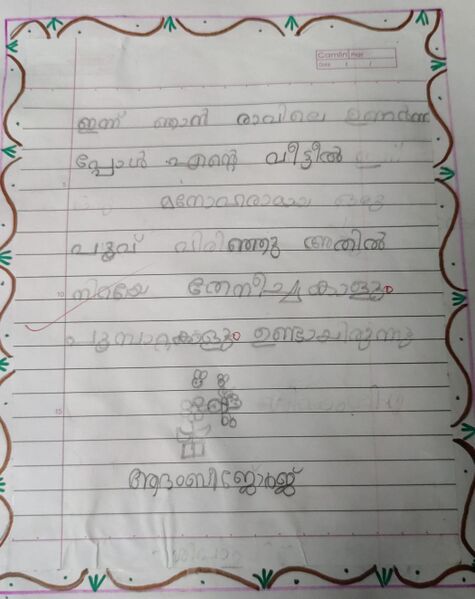 Camlin Page
Date / /
ഇന്ന് ഞാൻ രാവിലെ ഉണർന്ന
പ്പോൾ എന്റെ വീട്ടിൽ
മനോഹരമായ ഒരു
പൂവ് വിരിഞ്ഞു അതിൽ
നിറയെ തേനീച്ച കാളും
പൂമ്പാറ്റകാളും ഉണ്ടായിരുന്നു
5
10
15
ആദംബിജോർജ്